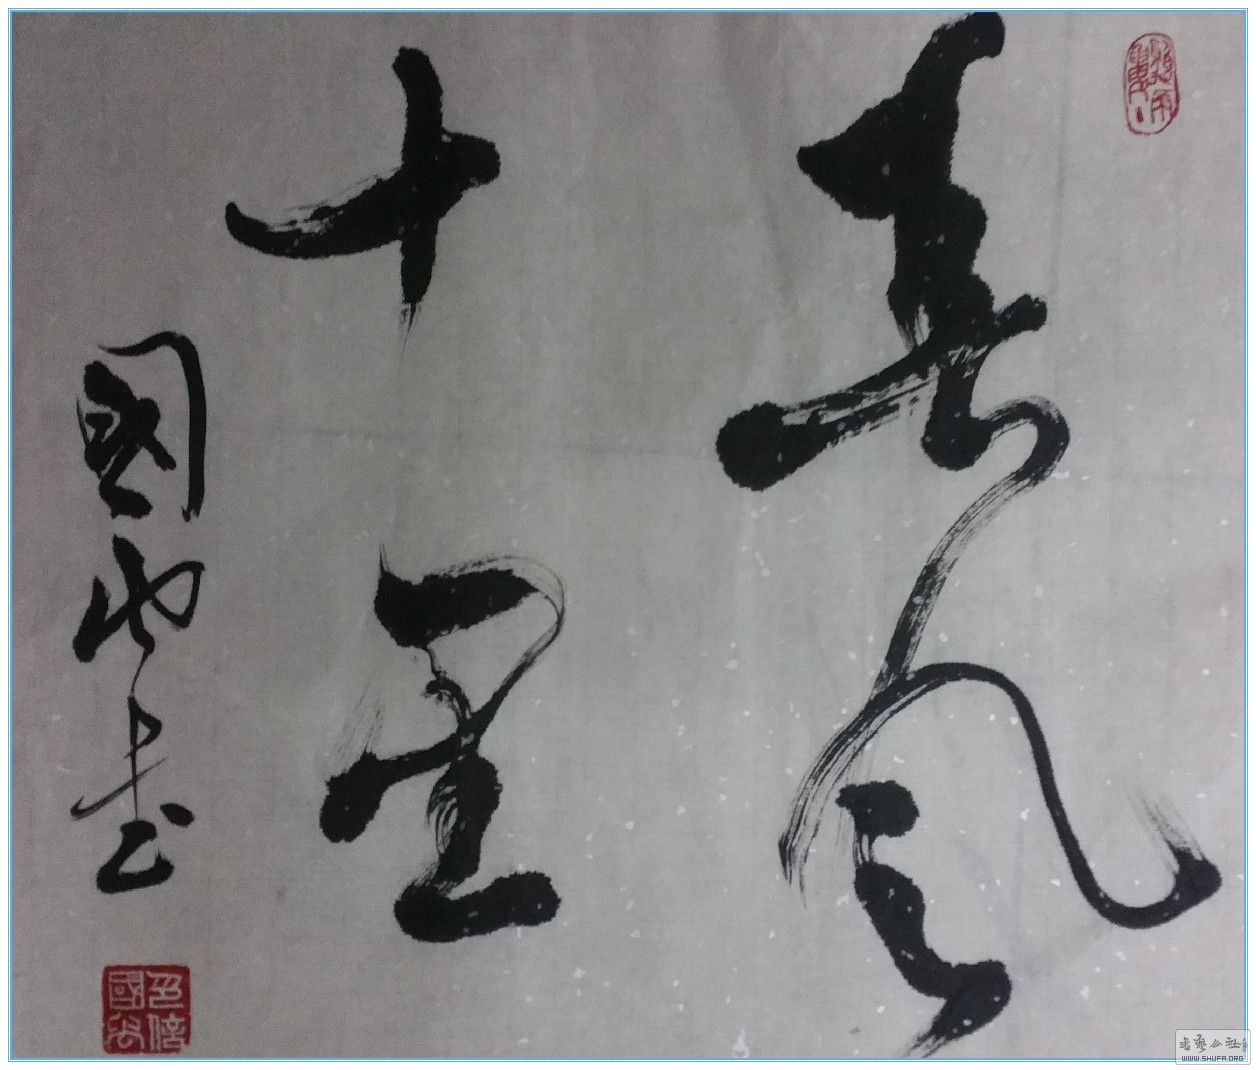 春风
十里
國山书
书法公社
WWW.SHUFA.ORG